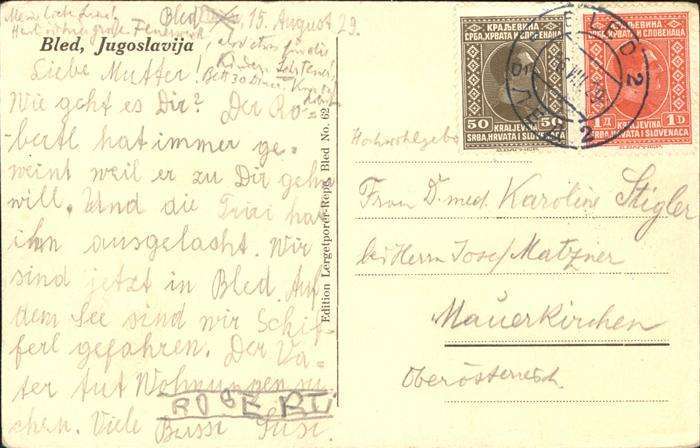 Bled, 15. August 29.
Bled, Jugoslavija
Liebe Mutter!
Wie geht es Dir? Der Ro-
bertl hat immer ge-
weint weil er zu Dir gehn
will. Und die Trixi hat
ihn ausgelacht. Wir
sind jetzt in Bled. Auf
dem See sind wir Schif-
ferl gefahren. Der Va-
ter tut Wohnungen su-
chen. Viele Bussi Susi.
ROBERTL
Edition Lergetporer-Repg. Bled No. 62
КРАЉЕВИНА
СРБА, ХРВАТА И СЛОВЕНАЦА
50 50
KRALJEVINA
SRBA, HRVATA I SLOVENACA
КРАЉЕВИНА
СРБА, ХРВАТА И СЛОВЕНАЦА
1 Д 1 D
KRALJEVINA
SRBA, HRVATA I SLOVENACA
BLED 2
Hochwohlgebo
Frau D. med. Karoline Stigler
bei Herrn Josef Matzner
Mauerkirchen
Oberösterreich.